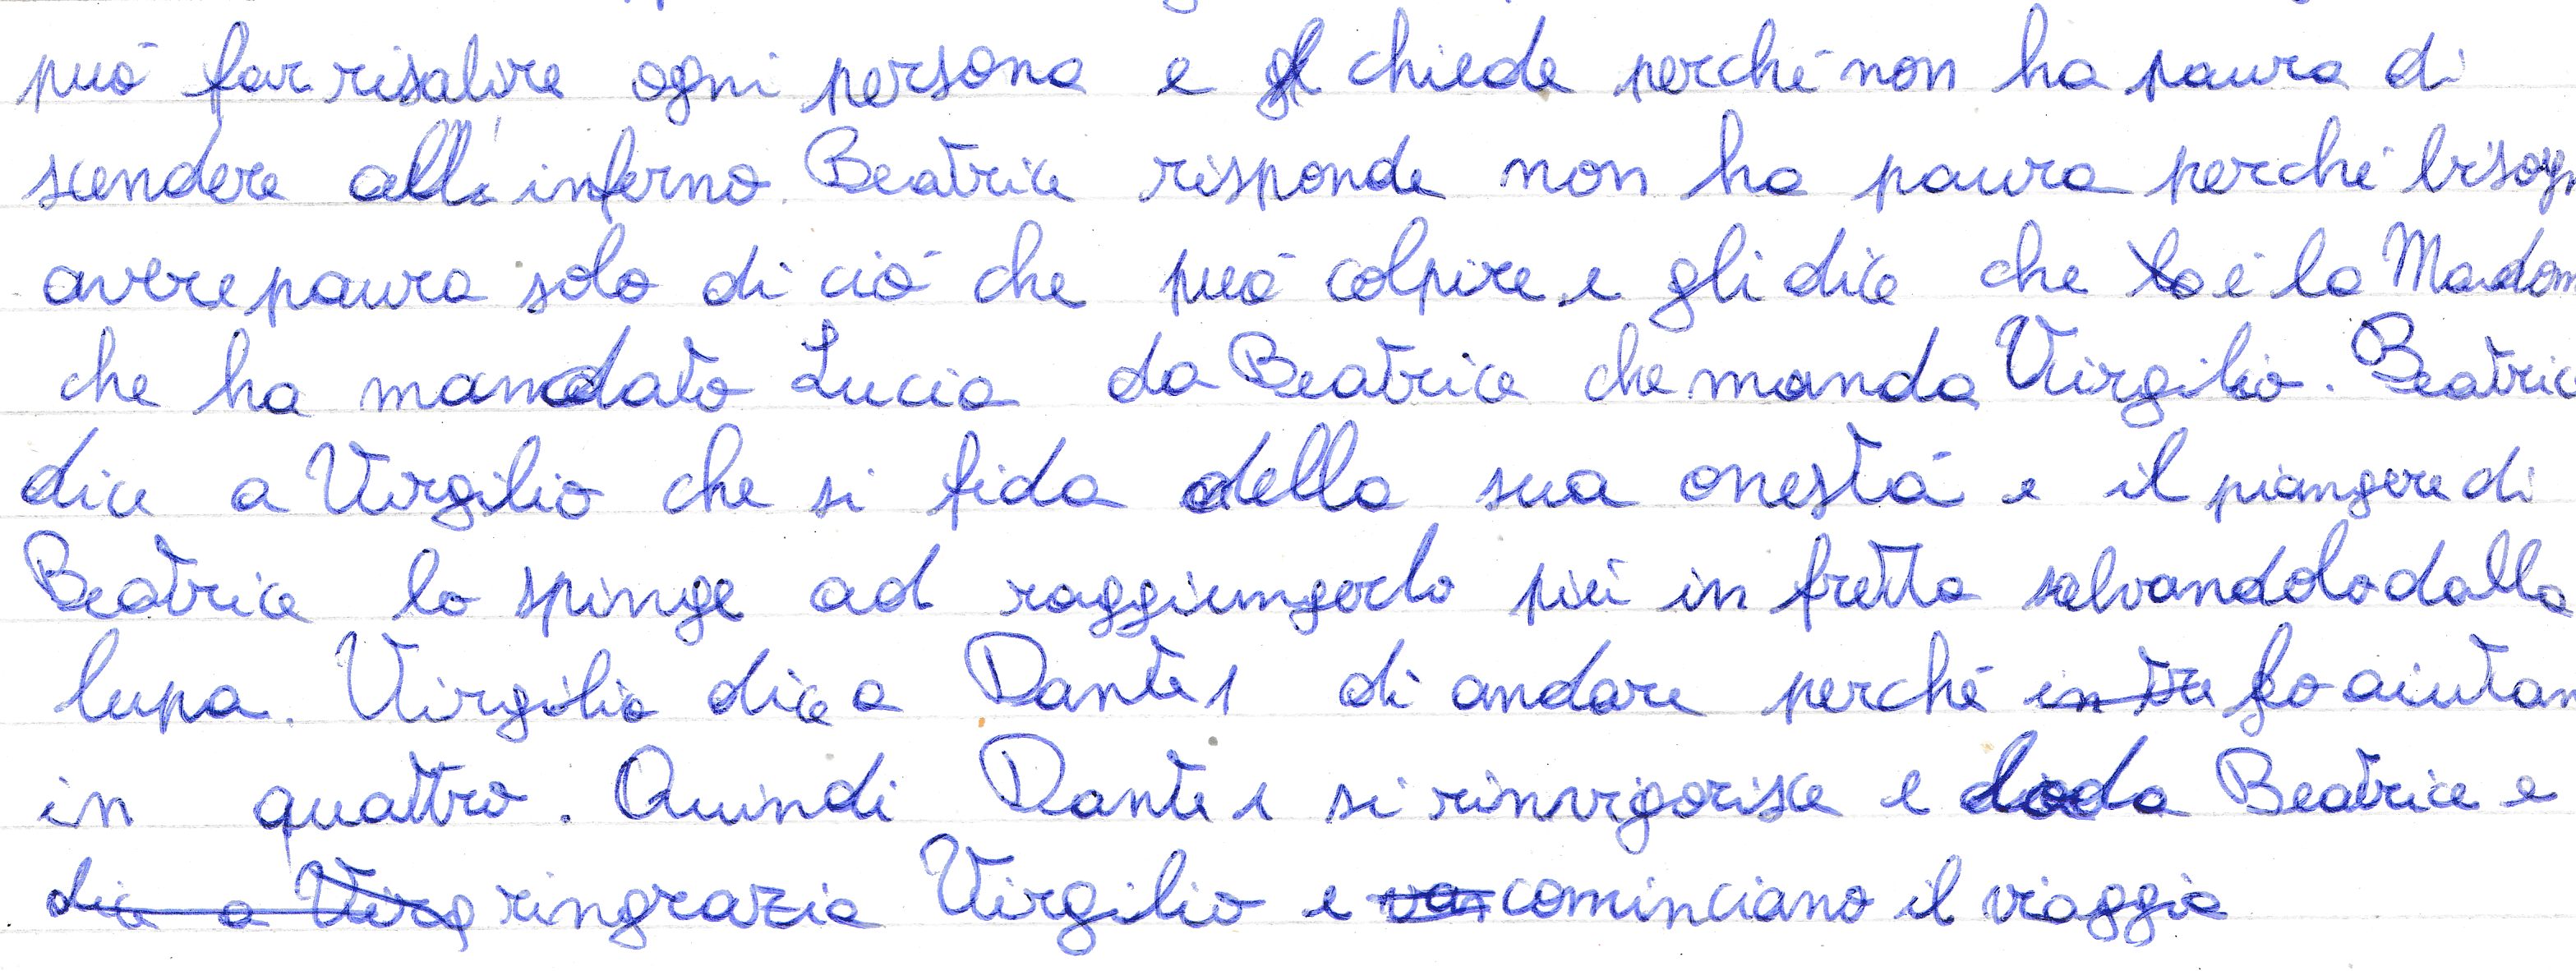 può far risalire ogni persona e chiede perché non ha paura di
scendere all'inferno. Beatrice risponde non ha paura perché bisogn
avere paura solo di ciò che può colpire e gli dice che è la Madonn
che ha mandato Lucia da Beatrice che manda Virgilio. Beatric
dice a Virgilio che si fida della sua onestà e il piangere di
Beatrice lo spinge ad raggiungerlo più in fretta salvandolo dalla
lupa. Virgilio dice a Dante 1 di andare perché in tre lo aiutan
in quattro. Quindi Dante 1 si rinvigorisce e loda Beatrice e
dice a Virg ringrazia Virgilio e cominciano il viaggio